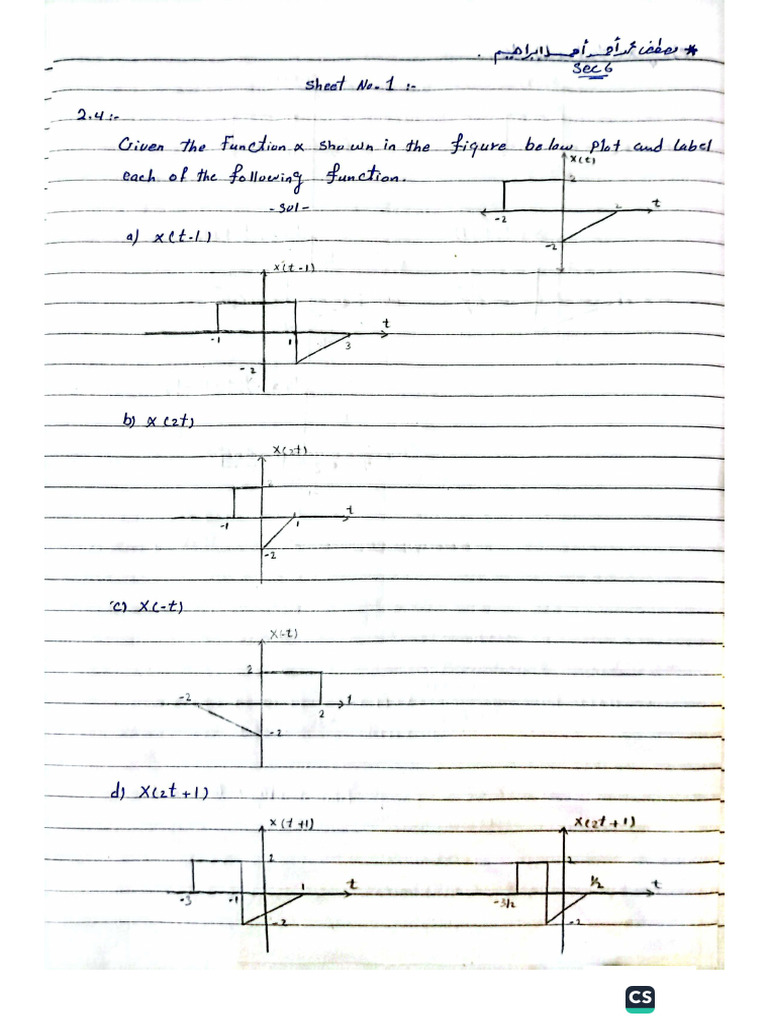 * مصطفى محمد أحمد ابراهيم .
Sec 6
Sheet No. 1 :-
2.4:-
Given the Function x shown in the figure below plot and Label
each of the following function.
x(t)
2
-2
2
t
-2
-sol-
a) x(t-1)
x(t-1)
t
-1
1
3
-2
b) x(2t)
x(2t)
t
-1
1
-2
c) x(-t)
x(-t)
2
-2
2
t
-2
d) x(2t+1)
x(t+1)
2
-3
-1
1
t
-2
x(2t+1)
2
-3/2
1/2
t
-2
CS